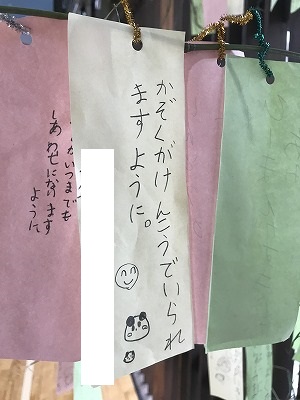 かぞくがけんこうでいられ
ますように。
いつまでも
しあわせになります
ように